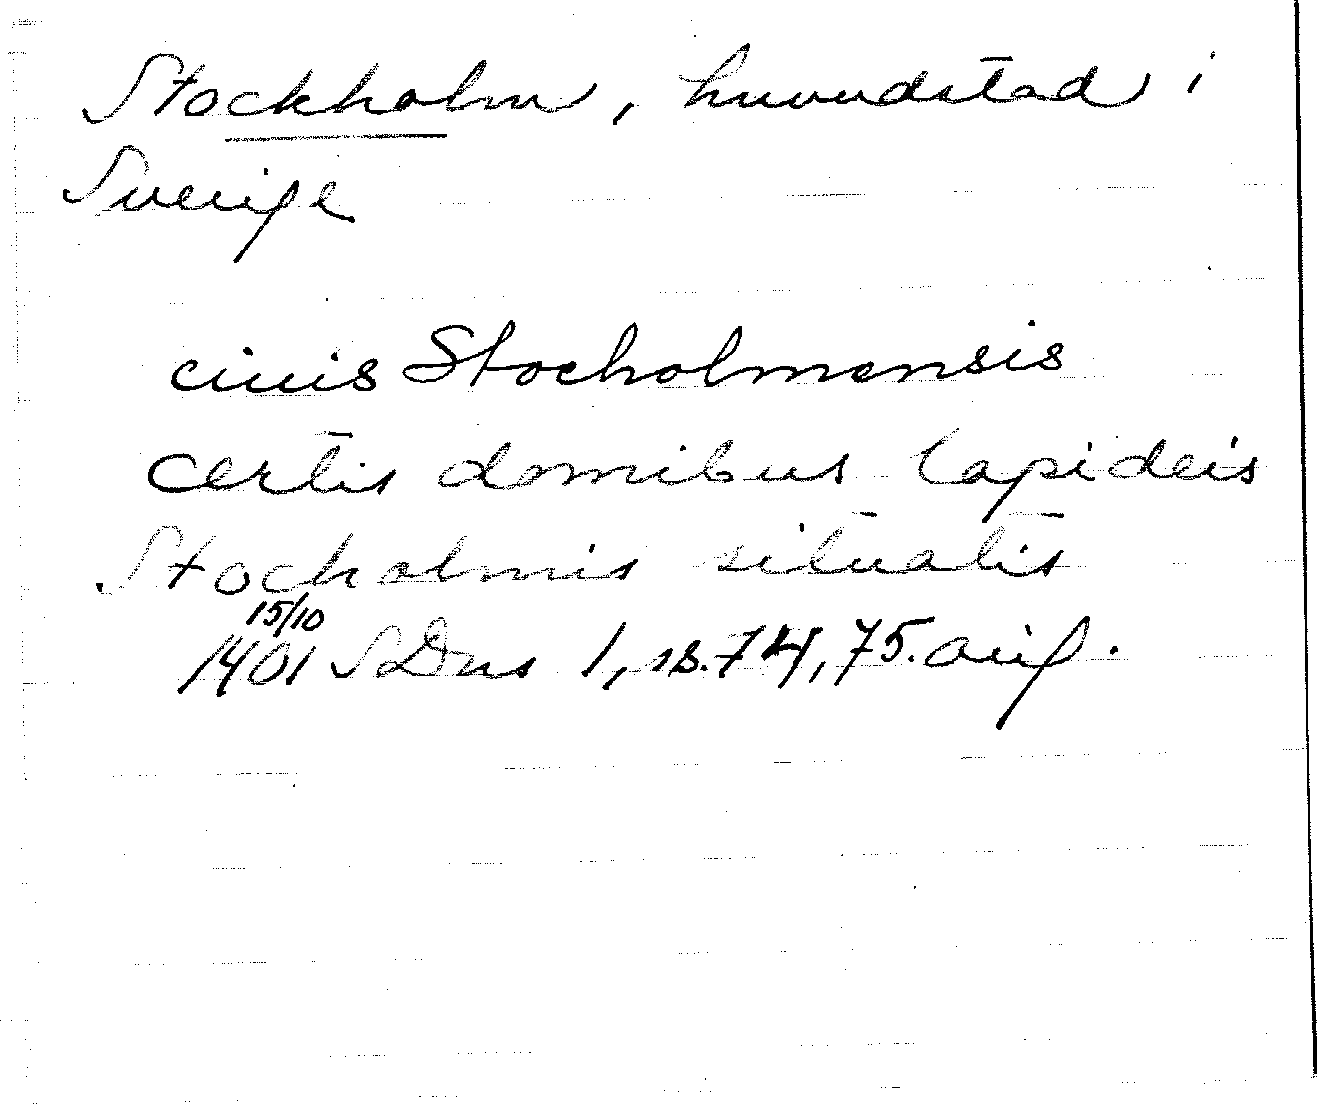 Stockholm, huvudstad i
Sverige
ciuis Stocholmensis
certis domibus lapideis
Stocholmis situatis
15/10
1401 SDns 1, ss. 74, 75. orig.